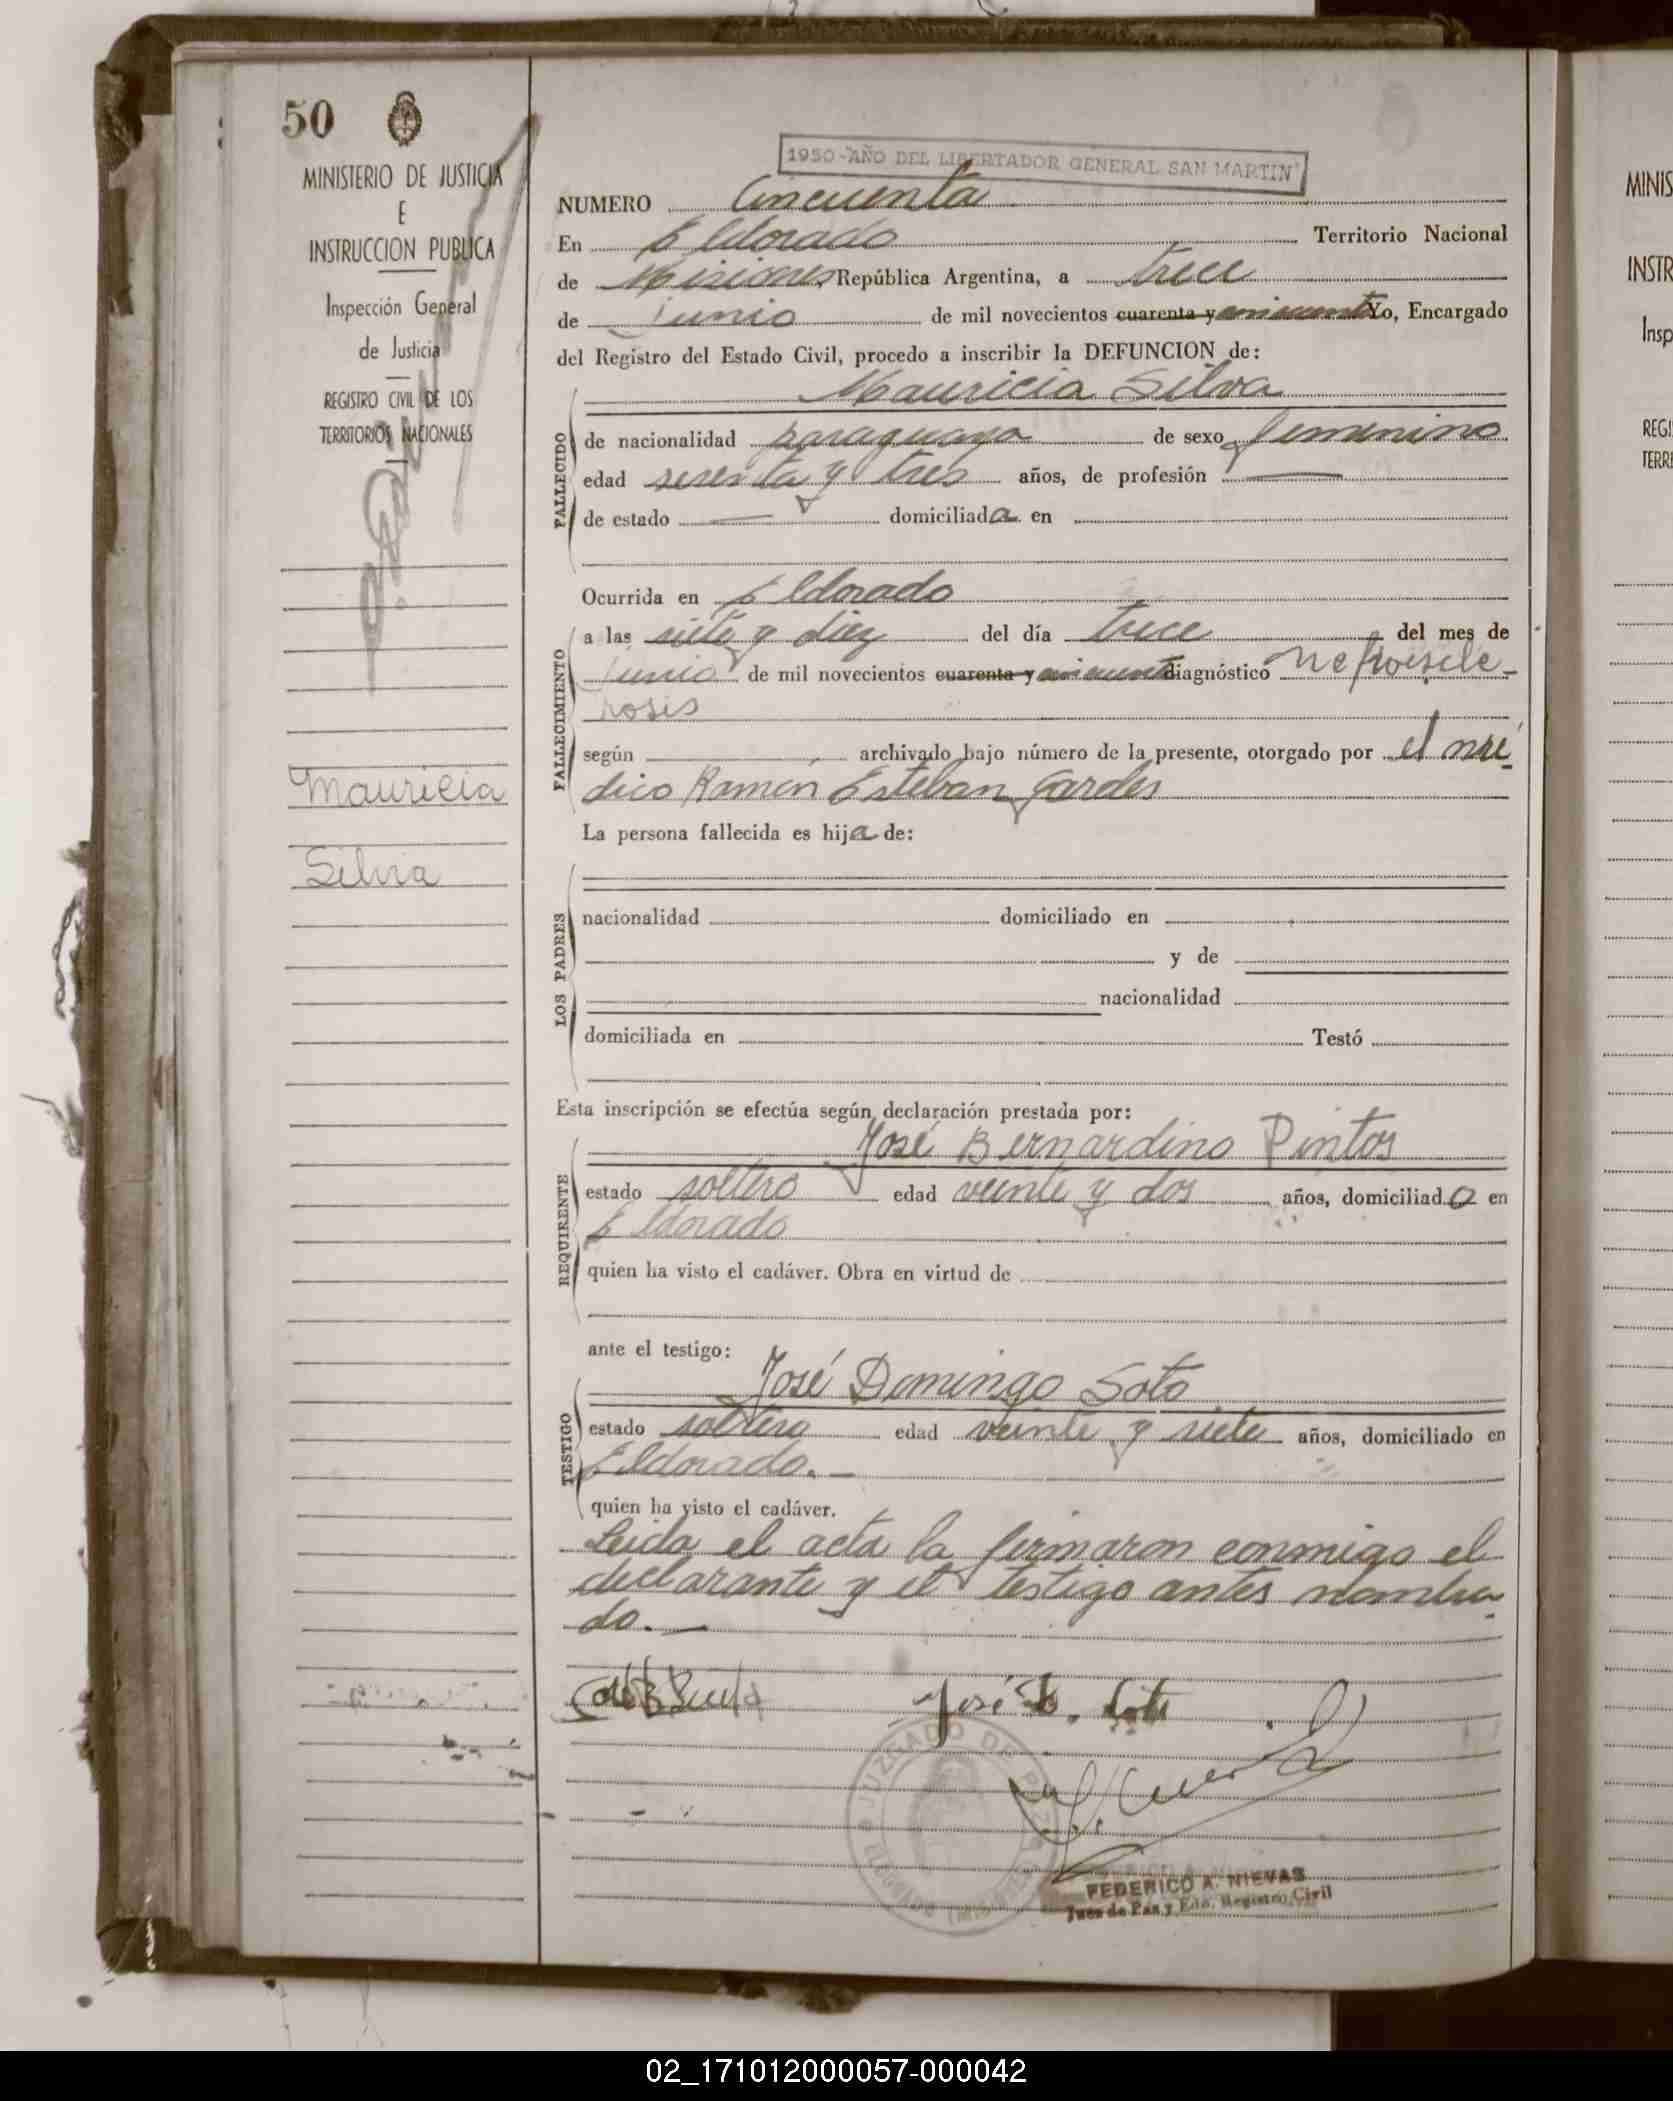 50
MINISTERIO DE JUSTICIA
E
INSTRUCCION PUBLICA
Inspección General
de Justicia
REGISTRO CIVIL DE LOS
TERRITORIOS NACIONALES
Mauricia
Silva
1950-"AÑO DEL LIBERTADOR GENERAL SAN MARTIN"
NUMERO Cincuenta
En Eldorado Territorio Nacional
de Misiones, República Argentina, a trece
de Junio de mil novecientos cuarenta y cincuenta Yo, Encargado
del Registro del Estado Civil, procedo a inscribir la DEFUNCION de:
Mauricia Silva
FALLECIDO
de nacionalidad paraguaya de sexo femenino
edad sesenta y tres años, de profesión —
de estado — domiciliada en
Ocurrida en Eldorado
FALLECIMIENTO
a las siete y diez del día trece del mes de
junio de mil novecientos cuarenta y cincuenta diagnóstico nefroescle-
rosis
según archivado bajo número de la presente, otorgado por el mé-
dico Ramón Esteban Gardes
La persona fallecida es hija de:
LOS PADRES
nacionalidad domiciliado en
y de
nacionalidad
domiciliada en Testó
Esta inscripción se efectúa según declaración prestada por:
José Bernardino Pintos
REQUIRENTE
estado soltero edad veinte y dos años, domiciliado en
Eldorado
quien ha visto el cadáver. Obra en virtud de
ante el testigo:
José Domingo Soto
TESTIGO
estado soltero edad veinte y siete años, domiciliado en
Eldorado.—
quien ha visto el cadáver.
Leida el acta la firmaron conmigo el
declarante y el testigo antes nombra-
do.—
José D. Soto
JUZGADO DE PAZ
FEDERICO A. NIEVAS
Juez de Paz y Edo. Registro Civil
MINIS
INSTR
Insp
REGI
TERRI
02_171012000057-000042